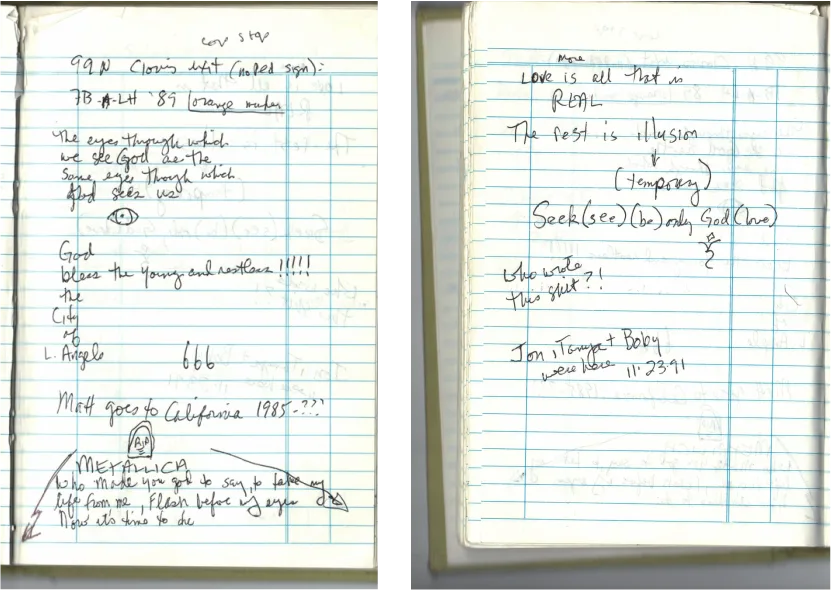 cop stop
99 N Clovis exit (no Ped sign):
7B-A-LH '89 orange marker
The eyes through which
we see God are the
same eyes though which
God sees us
God
bless the young and restless !!!!!
the
City
of
L. Angels
666
Matt goes to California 1985-???
RIP
METALLICA
Who made you god to say, to take my
life from me, Flash before my eyes
Now it's time to die
More
Love is all that is
REAL
The rest is illusion
(temporary)
Seek (see) (be) only God (love)
?
Who wrote
this shit?!
Jon, Tanya + Boby
were here 11-23-91